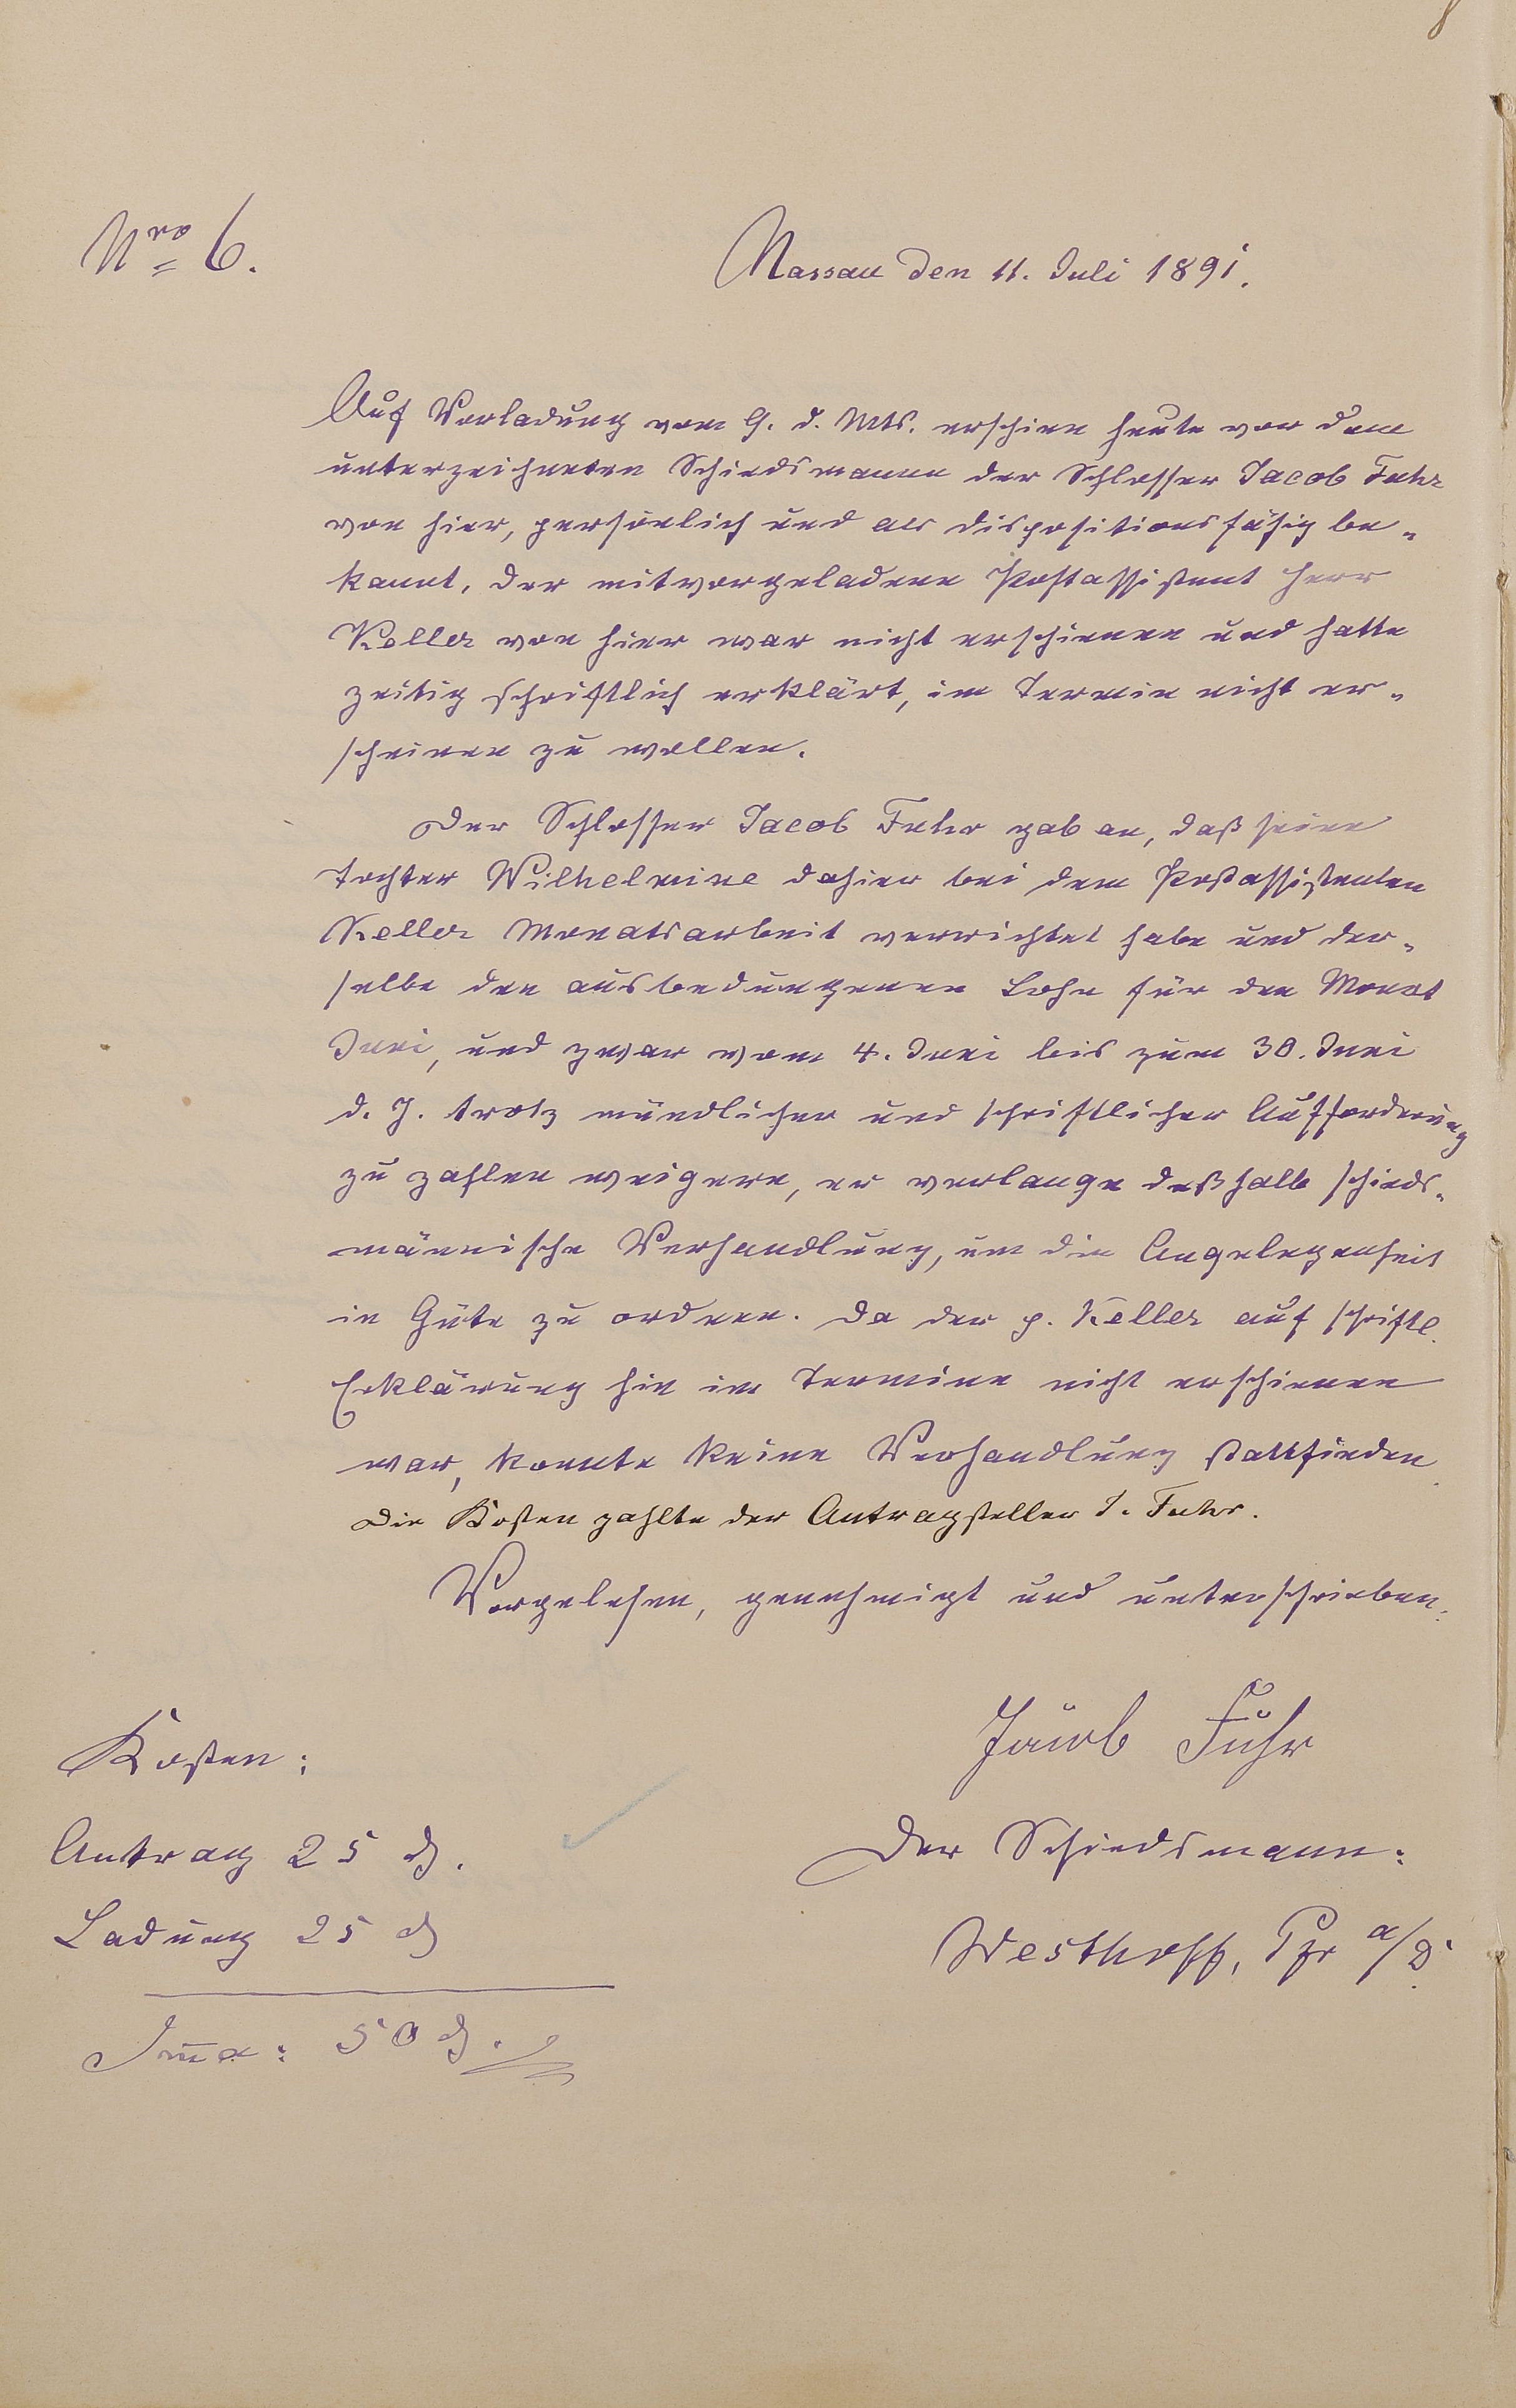 8
Nro 6.
Nassau den 11. Juli 1891.
Auf Vorladung vom 9. d. Mts. erschien heute vor dem
unterzeichneten Schiedsmanne der Schlosser Jacob Fuhr
von hier, persönlich und als dispositionsfähig be-
kannt, der mitvorgeladene Postassistent Herr
Keller von hier war nicht erschienen und hatte
zeitig schriftlich erklärt, im Termin nicht er-
scheinen zu wollen.
Der Schlosser Jacob Fuhr gab an, daß seine
Tochter Wilhelmine dahier bei dem Postassistenten
Keller Monatsarbeit verrichtet habe und der-
selbe den ausbedungenen Lohn für den Monat
Juni, und zwar vom 4. Juni bis zum 30. Juni
d. J. trotz mündlicher und schriftlicher Aufforderung
zu zahlen weigere, er verlange deßhalb schieds-
männische Verhandlung, um die Angelegenheit
in Güte zu ordnen. Da der p. Keller auf schriftl.
Erklärung hin im Termine nicht erschienen
war, konnte keine Verhandlung stattfinden.
Die Kosten zahlte der Antragsteller J. Fuhr.
Vorgelesen, genehmigt und unterschrieben.
Jacob Fuhr
Kosten:
Antrag 25 ₰.
Der Schiedsmann:
Ladung 25 ₰
Westhoff, Pfr a/D.
Sma: 50 ₰.